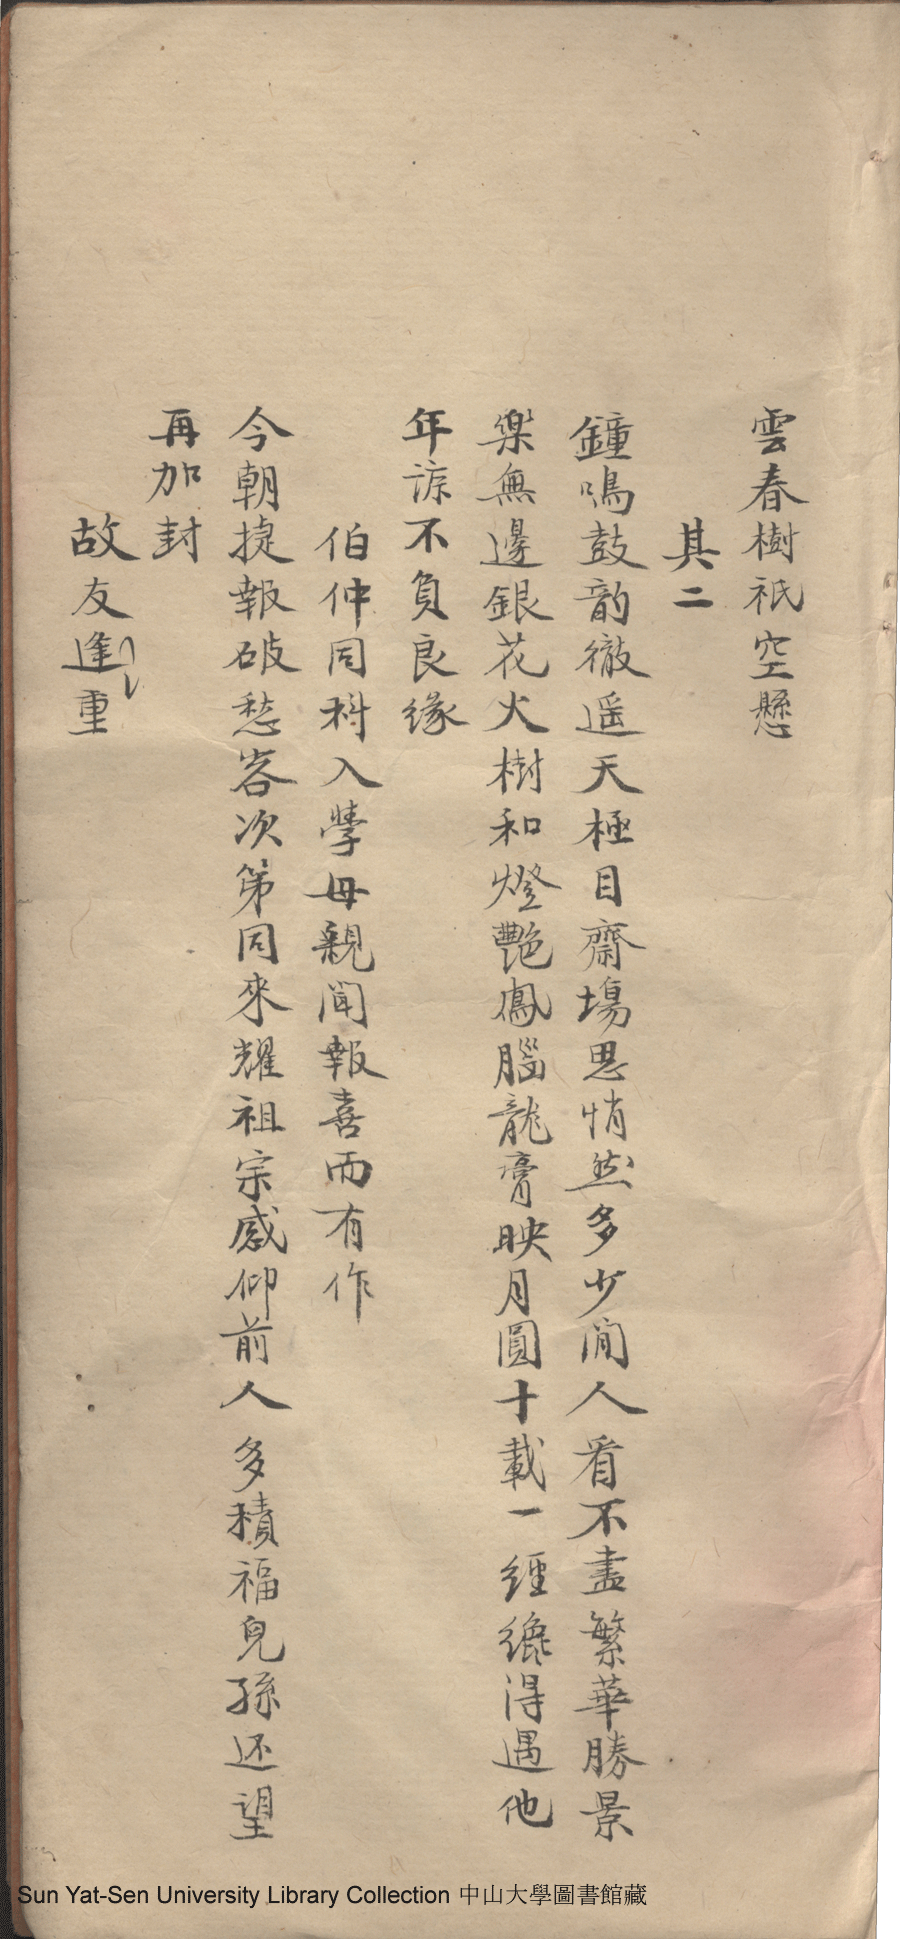 雲春樹祇空懸
其二
鐘鳴鼓韵徹遥天極目齋塲思悄然多少閒人看不盡繁華勝景
樂無邊銀花火樹和燈艷鳳腦龍膏映月圓十載一經纔得遇他
年諒不負良緣
伯仲同科入學母親聞報喜而有作
今朝㨗報破愁容次第同來耀祖宗感仰前人多積福兒孫还望
再加封
故友逢重
Sun Yat-Sen University Library Collection 中山大學圖書館藏